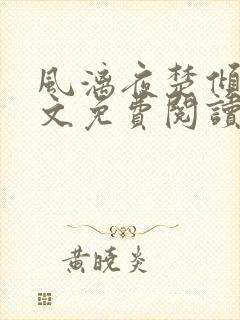 風漓夜楚傾
文免費閱讀
黃曉炎